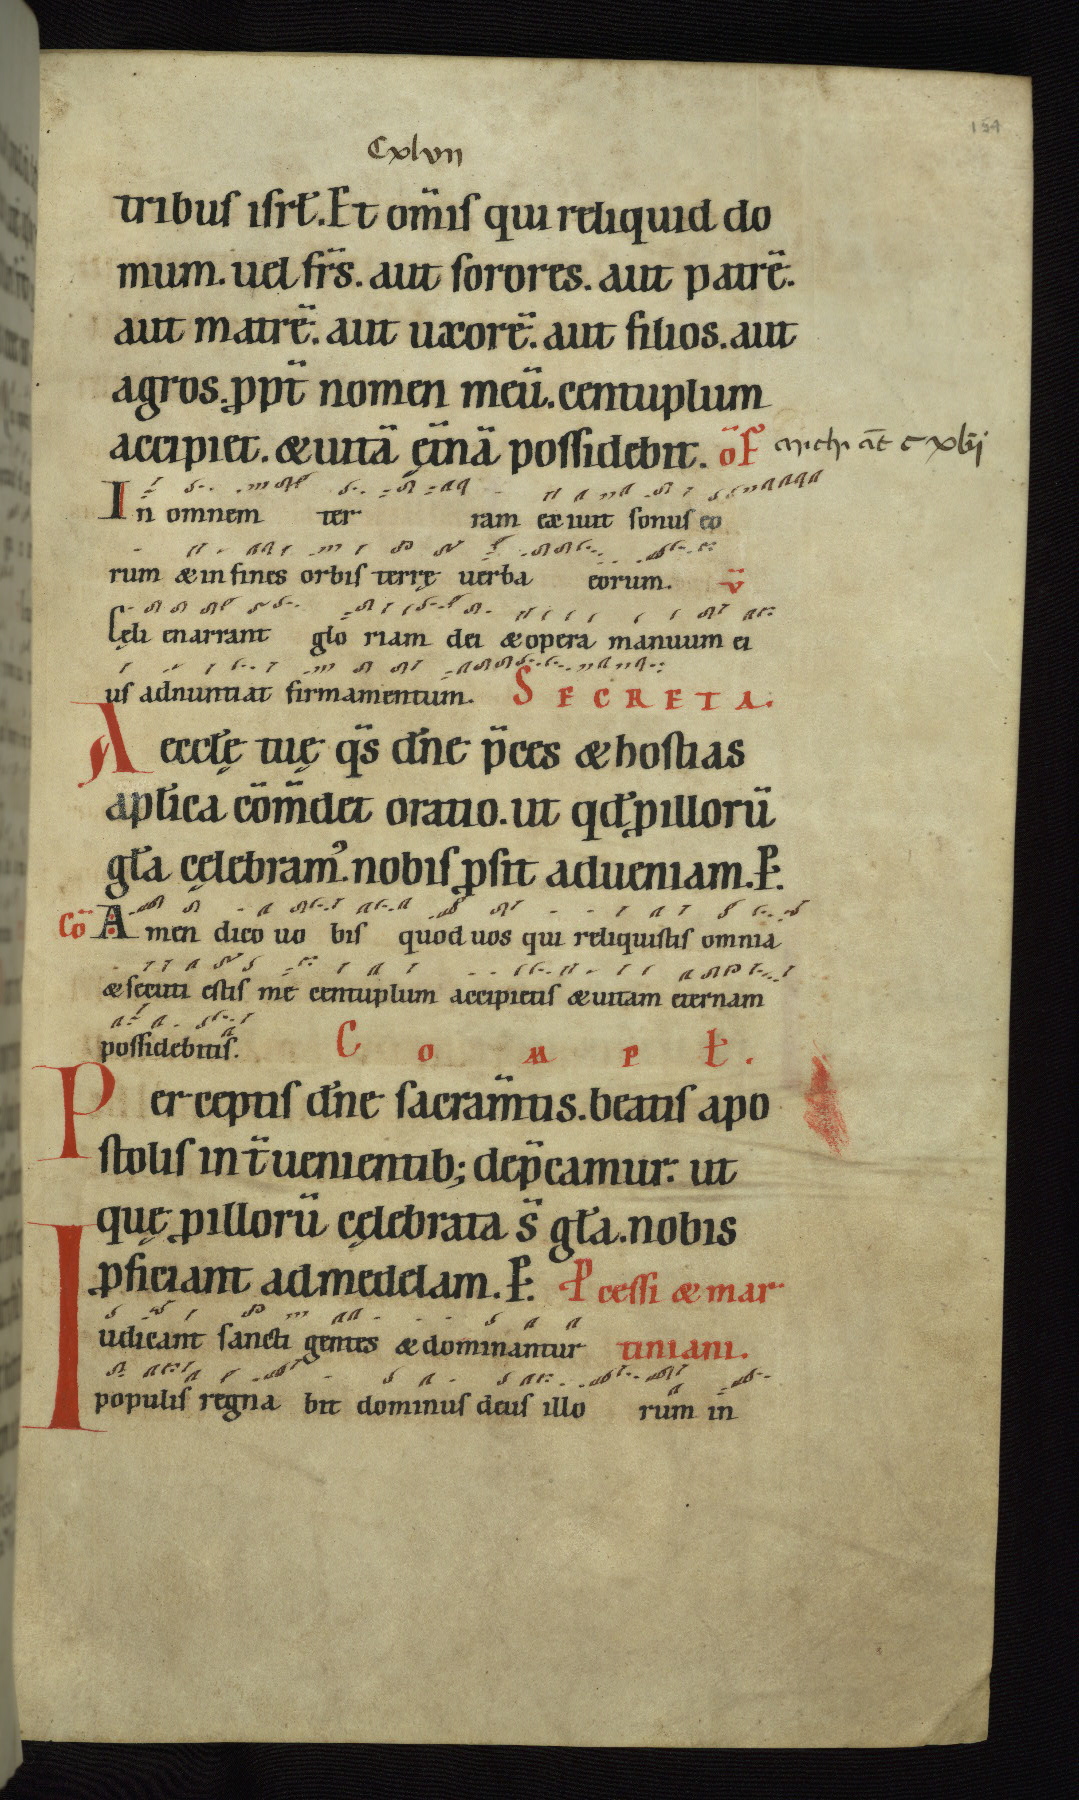 154
Cxlvii
tribuſ iſrł. Et om̄iſ qui reliquid do
mum. uel fr̄s. aut ſorores. aut patrē.
aut matrē. aut uxorē. aut filios. aut
agros. ꝓpt̄ nomen meū. centuplum
accipiet. & uitā et̄nā poſſidebit. oF̄ michi aūt cxlij
In omnem ter ram exiuit ſonuſ eo
rum & in fines orbiſ terrę uerba eorum. v̄
Cęli enarrant glo riam dei & opera manuum ei
uſ adnuntiat firmamentum. SECRETA.
A eccłę tuę q̄s dn̄e p̄ces & hoſtias
apłica com̄det oratio. ut qđ ꝓ illorū
gła cęlebramꝰ. nobiſ ꝓſit ad ueniam. P.
Cō Amen dico uo bis quod uos qui reliquiſtis omnia
& ſecuti eſtis me centuplum accipietis & uitam eternam
poſſidebitiſ. Compł.
Perceptiſ dn̄e ſacram̄tis. beatiſ apo
ſtoliſ int̄uenientib; dep̄camur. ut
quę ꝓ illorū cęlebrata s̄ gła. nobis
ꝓficiant ad medelam. P. Pceſſi & mar
Iudicant ſancti gentes & dominantur tiniani.
populiſ regna bit dominuſ deuſ illo rum in